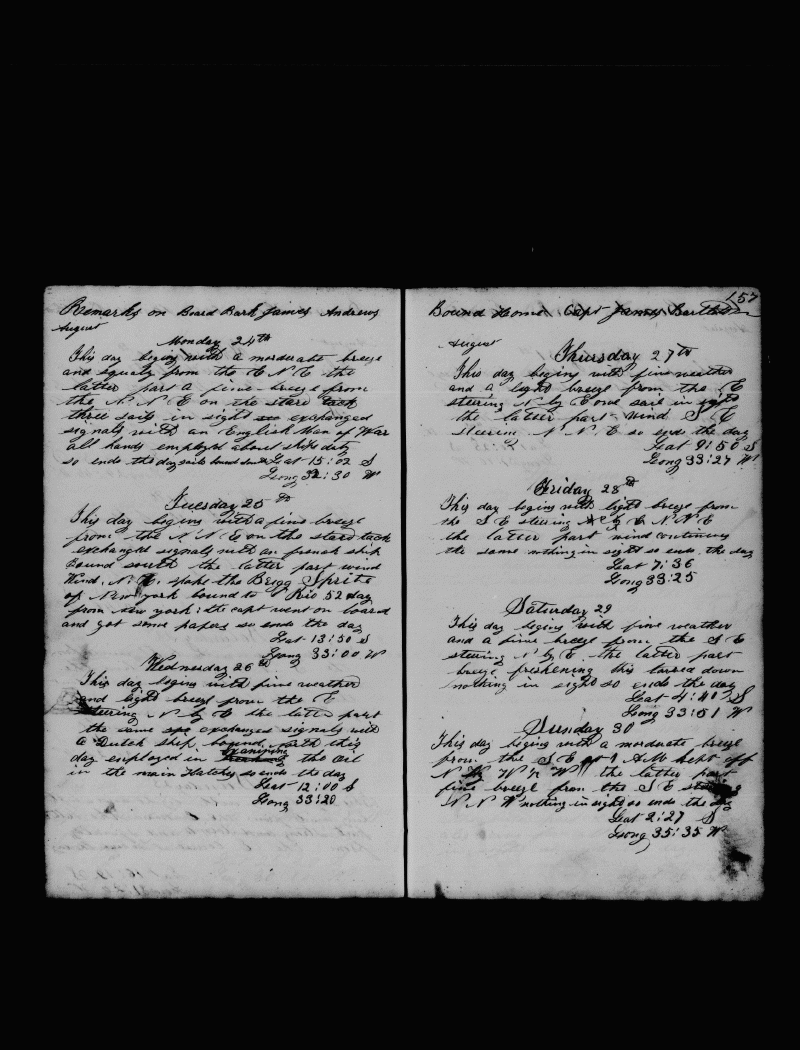 Remarks on Board Bark James Andrews
August
Monday 24th
This day begins with a morderate breeze
and squaly from the E N E the
latter part a fine breeze from
the N. N. E on the stard tack
three sails in sight exchanged
signals with an English Man of War
all hands employd about ships duty
so ends the day sails bound south Lat 15:02 S
Long 32:30 W
Tuesday 25th
This day begins with a fine breeze
from the N N E on the stard tack
exchangd signals with an french ship
Bound south the latter part wind
Wind, N. E. spoke the Brigg Sprite
of New york bound to Rio 52 day
from new york: the capt went on board
and got some papers so ends the day
Lat 13:50 S
Long 33:00 W
Wednesday 26th
This day begins with fine weather
and light breeze from the E
steering N by E the latter part
the same exchanged signals with
a Dutch ship, bound, south this
day employed in the oil
in the main Hatches so ends the day
Lat 12:00 S
Long 33:20
157
Bound Home Capt James Bartlett
August
Thursday 27th
This day begins with fine weather
and a light breeze from the E
steering N by E one sail in sight
the latter part wind S E
steerin N N. E so ends the day
Lat 9:50 S
Long 33:27 W
Friday 28th
This day begins with light breeze from
the S E steering N by E N. N E
the latter part wind continues
the same nothing in sight so ends the day
Lat 7:36
Long 33:25
Saturday 29
This day begins with fine weather
and a fine breeze from the S E
steering N by E the latter part
breeze freshening this
nothing in sight so ends the day
Lat 4:41 S
Long 33:51 W
Sunday 30
This day begins with a morderate breeze
from the S E at 1 A.M kept off
N W the latter part
fine breeze from the S E
N N W nothing in sight so ends the day
Lat 2:27 S
Long 35:35 W